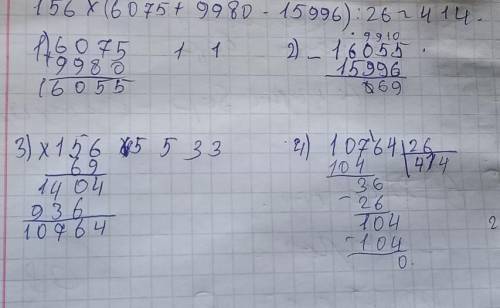 156 × (6075 + 9980 - 15996) : 26 = 414.
1) 6075 1 1
+ 9980
16055
2) - 16055 .
. 9910
15996
69
3) × 156 5 5 3 3
69
1404
936
10764
4) 10764 26
104 414
36
- 26
104
- 104
0.
2